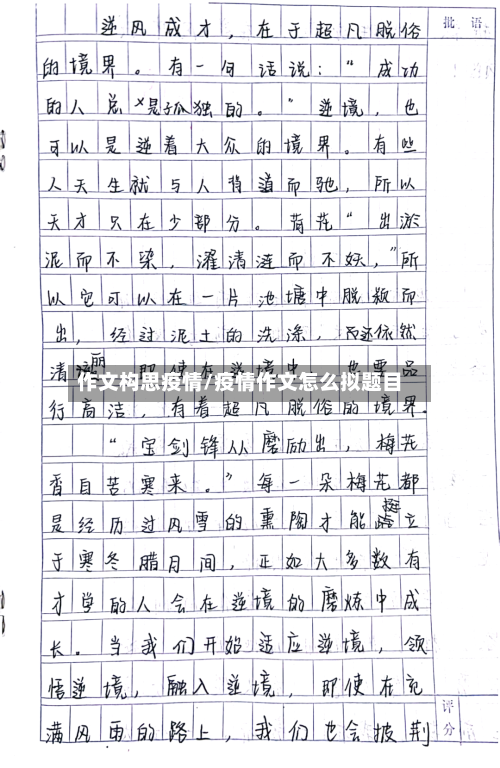 批 语
逆风成才，在于超凡脱俗
的境界。有一句话说：“成功
的人总是孤独的。”逆境，也
可以是逆着大众的境界。有些
人天生就与人背道而驰，所以
天才只在少部分。荷花“出淤
泥而不染，濯清涟而不妖，”所
以它可以在一片池塘中脱颖而
出，经过泥土的洗涤，还依然
清丽，即使在逆境中，也要品
作文构思疫情/疫情作文怎么拟题目
行高洁，有着超凡脱俗的境界。
“宝剑锋从磨励出，梅花
香自苦寒来。”每一朵梅花都
是经历过风雪的熏陶才能挺立
于寒冬腊月间，正如大多数有
才学的人会在逆境的磨炼中成
长。当我们开始适应逆境，领
悟逆境，融入逆境，即使在充
满风雨的路上，我们也会披荆
评
分